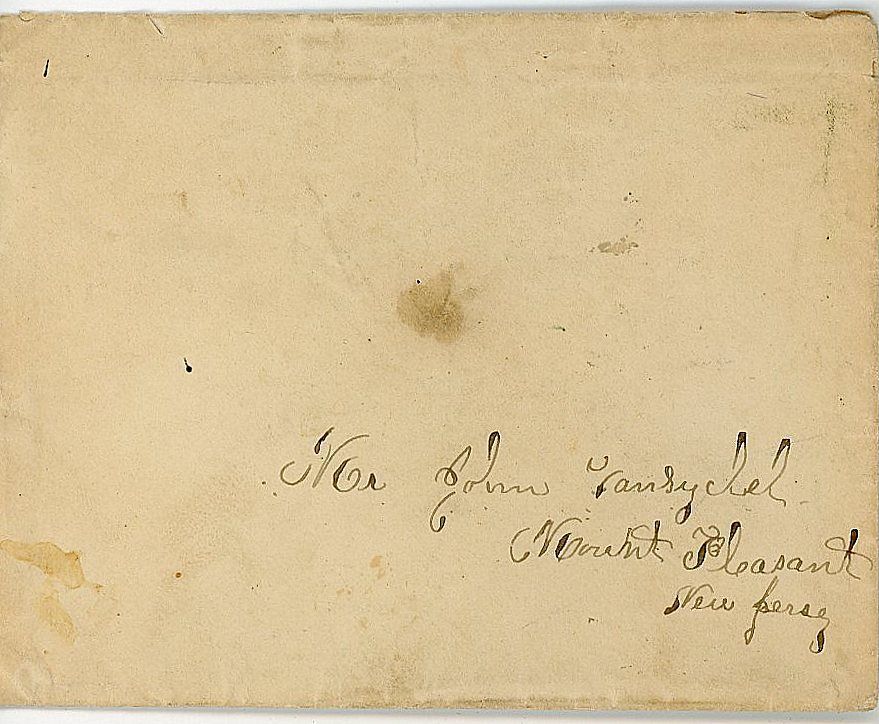 Mr John Vansyckel
Mount Pleasant
New Jersey